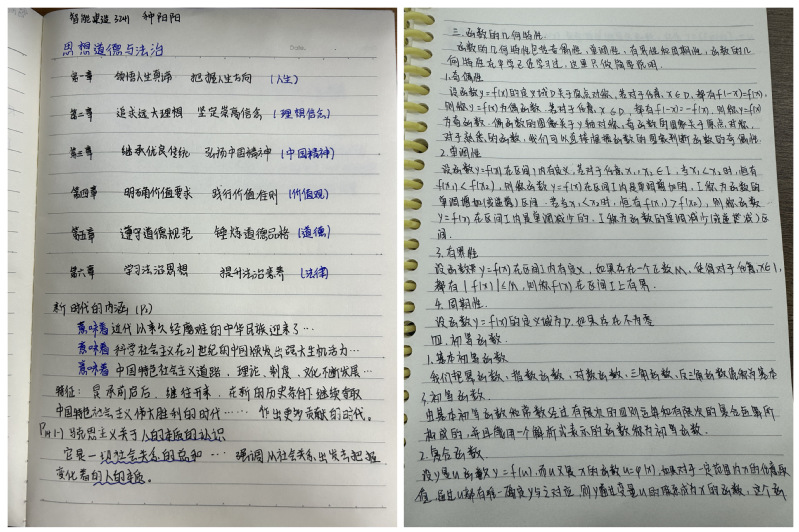 智能建造3241 钟阳阳
思想道德与法治
第一章 领悟人生真谛 把握人生方向 (人生)
第二章 追求远大理想 坚定崇高信念 (理想信念)
第三章 继承优良传统 弘扬中国精神 (中国精神)
第四章 明确价值要求 践行价值准则 (价值观)
第五章 遵守道德规范 锤炼道德品格 (道德)
第六章 学习法治思想 提升法治素养 (法律)
新时代的内涵 (P2)
意味着近代以来久经磨难的中华民族迎来了…
意味着科学社会主义在21世纪的中国焕发出强大生机活力…
意味着中国特色社会主义道路、理论、制度、文化不断发展…
特征：是承前启后、继往开来、在新的历史条件下继续夺取
中国特色社会主义伟大胜利的时代…… 作出更多贡献的时代。
马克思主义关于人的本质的认识
它是一切社会关系的总和… 强调从社会关系出发去把握
变化着的人的本质。
三.函数的几何特性
函数的几何特性包括奇偶性,单调性,有界性和周期性,函数的几
何特性在中学已经学习过,这里只做简单说明.
1.奇偶性
设函数y=f(x)的定义域D关于原点对称,若对于任意x∈D,都有f(-x)=f(x),
则称y=f(x)为偶函数,若对于任意x∈D,都有f(-x)=-f(x),则称y=f(x)
为奇函数.偶函数的图像关于y轴对称,奇函数的图像关于原点对称,
对于熟悉的函数,我们可以直接根据函数的图像判断函数的奇偶性.
2.单调性
设函数y=f(x)在区间I内有定义,若对于任意x₁,x₂∈I,当x₁<x₂时,恒有
f(x₁)<f(x₂),则称函数y=f(x)在区间I内是单调增加的,I称为函数的
单调增加(或递增)区间.若当x₁<x₂时,恒有f(x₁)>f(x₂),则称函数
y=f(x)在区间I内是单调减少的,I称为函数的单调减少(或是递减)区
间.
3.有界性
设函数y=f(x)在区间I内有定义,如果存在一个正数M,使得对于任意x∈I,
都有|f(x)|≤M,则称f(x)在区间I上有界.
4.周期性.
设函数y=f(x)的定义域为D,如果存在不为零
四.初等函数.
1.基本初等函数
我们把幂函数,指数函数,对数函数,三角函数,反三角函数统称为基本
初等函数.
由基本初等函数和常数经过有限次的四则运算和有限次的复合运算所
构成的,并且能用一个解析式表示的函数称为初等函数.
2.复合函数.
设y是u函数y=f(u),而u又是x的函数u=φ(x),如果对于一定范围内x的任意取
值,通过u都有唯一确定y与之对应,则y通过变量u的
成为x的函数,这个函